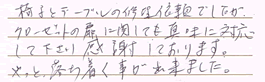 椅子とテーブルの修理依頼でしたが、
クローゼットの扉に関しても真味に対応
して下さり感謝しております。
やっと、落ち着く事が出来ました。